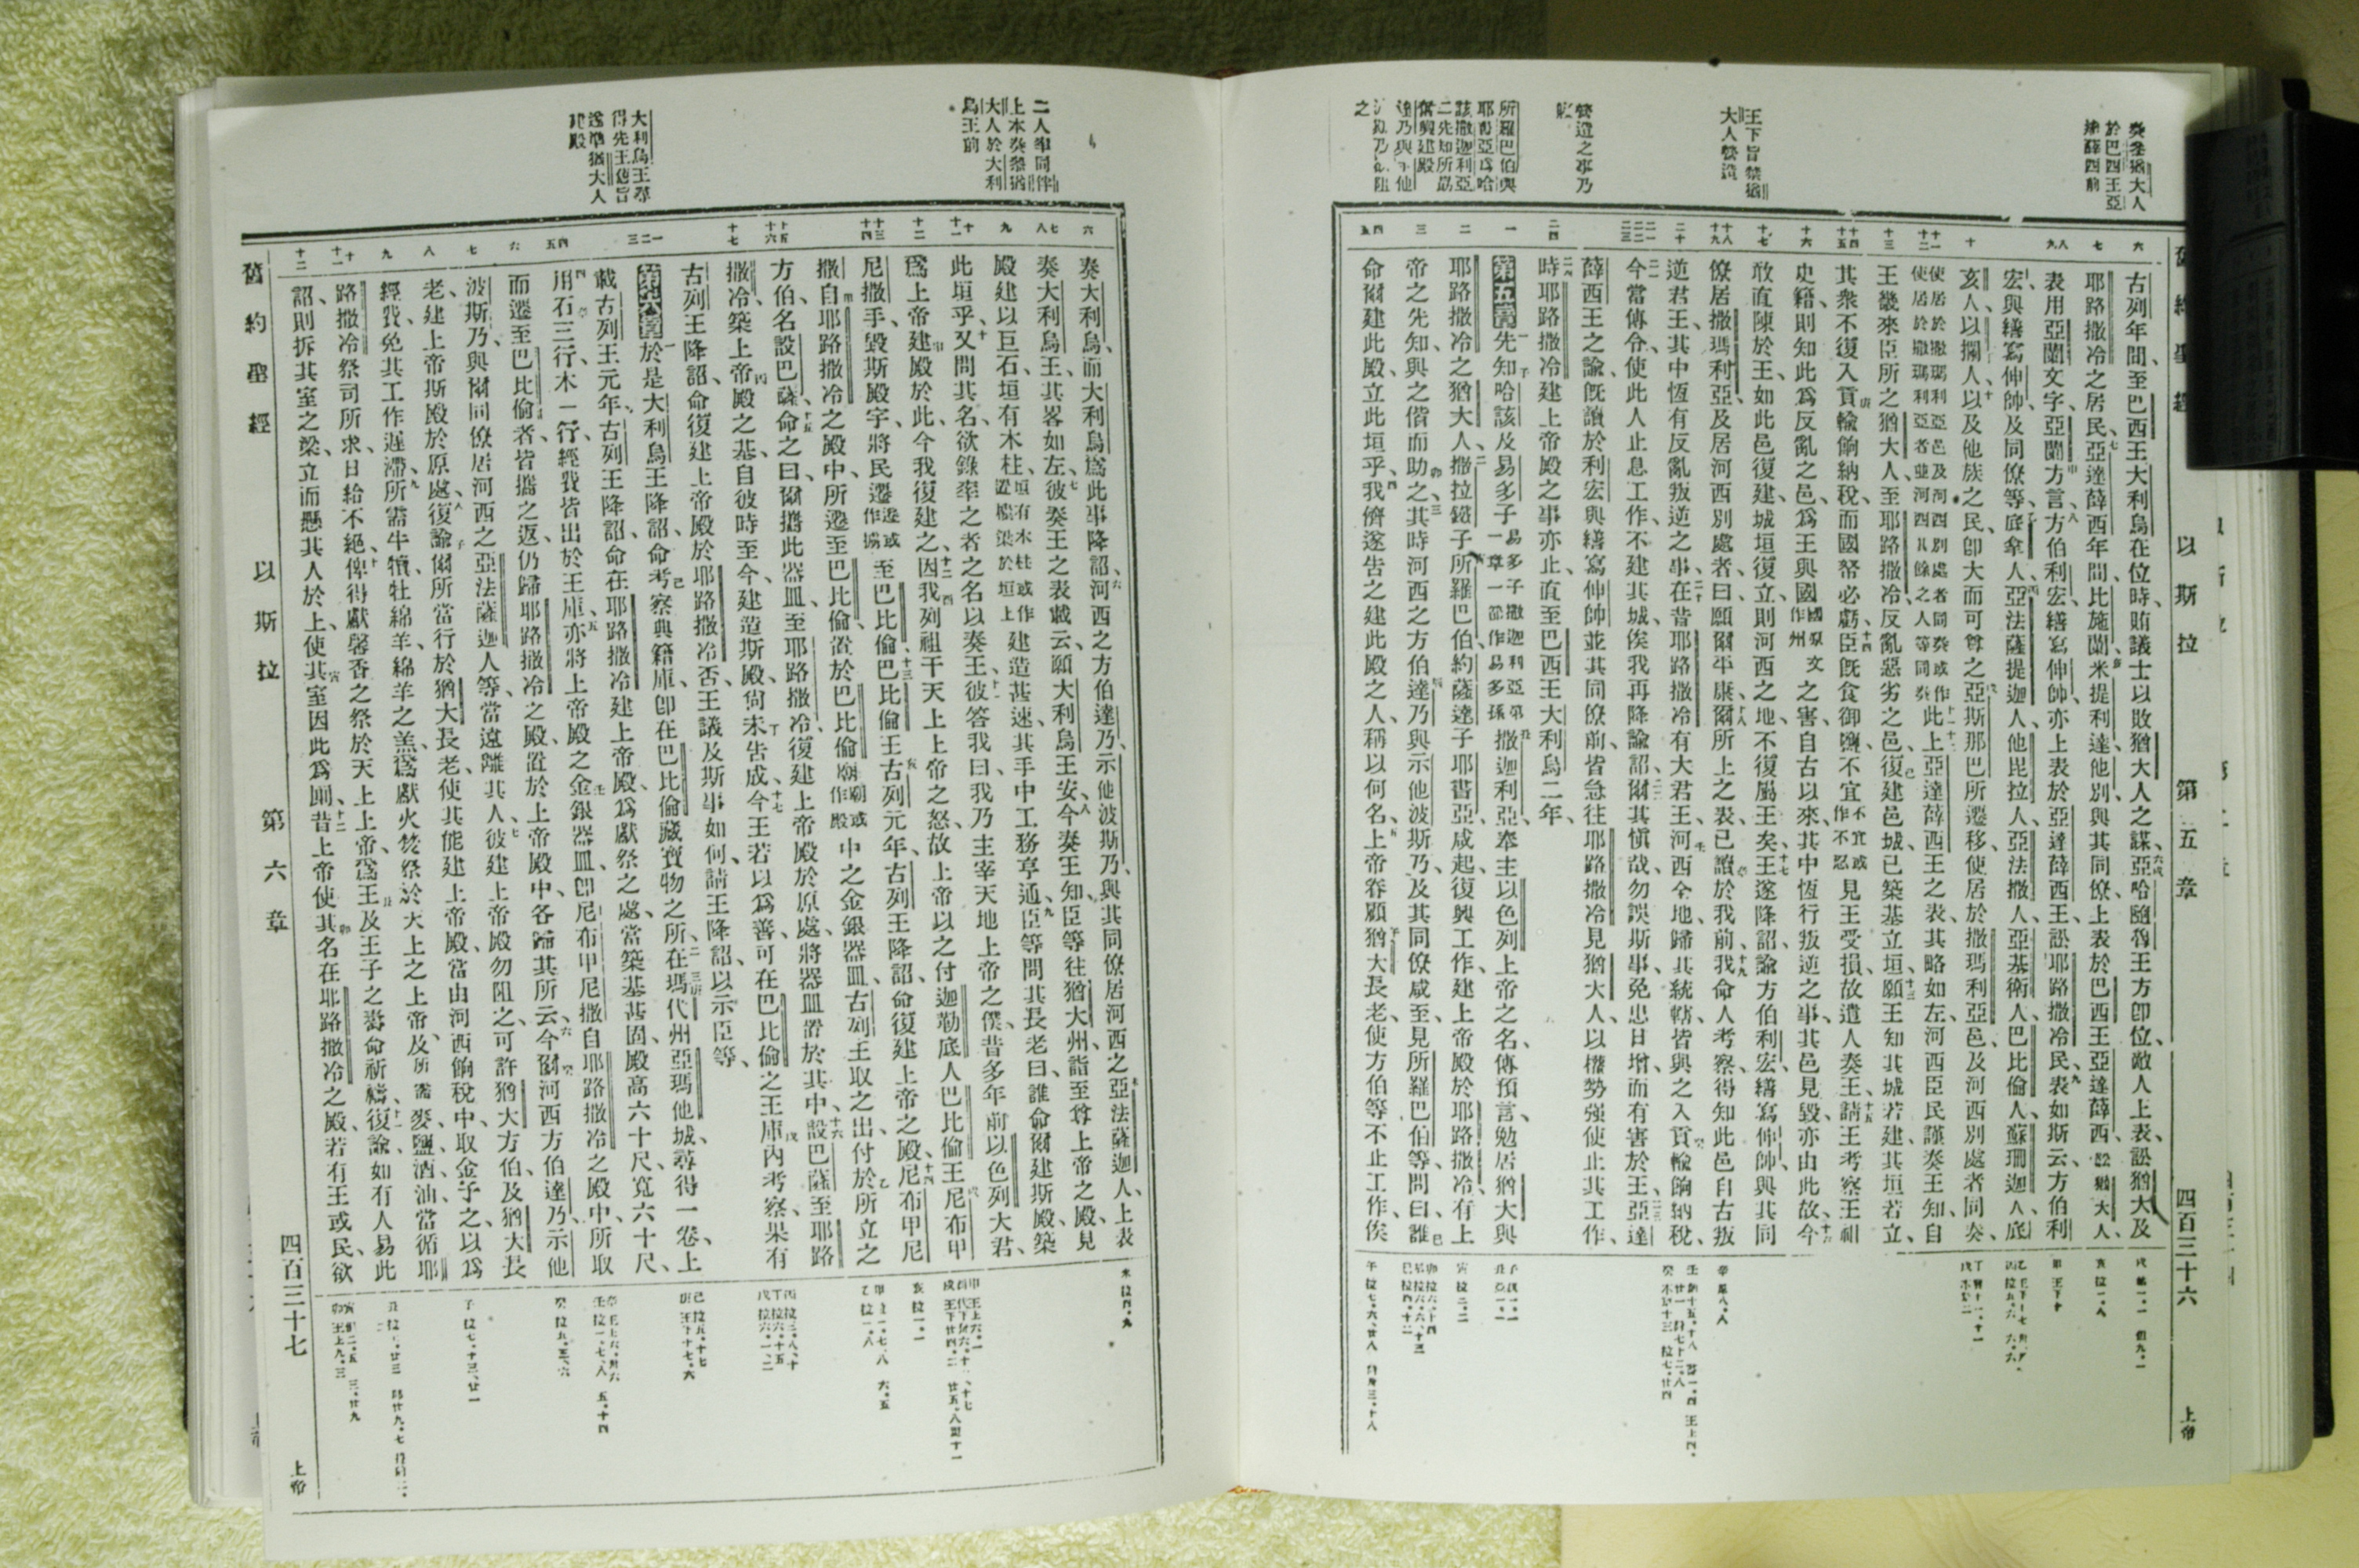 奏參猶大人
於巴西王亞
達薛西前
王下旨禁猶
大人營造
營造之事乃
所羅巴伯與
耶書亞爲哈
該撒迦利亞
二先知所勗
奮興建殿
達乃與示他
之
古列年間、至巴西王大利烏在位時、賄議士以敗猶大人之謀、亞哈隨魯王方卽位、敵人上表、訟猶大及
耶路撒冷之居民、亞達薛西年間、比施蘭米提利達他別與其同僚、上表於巴西王亞達薛西、訟猶大人、
表用亞蘭文字、亞蘭方言、方伯利宏繕寫伸帥、亦上表於亞達薛西王、訟耶路撒冷民、表如斯云、方伯利
宏與繕寫伸帥、及同僚等、底拿人、亞法薩提迦人、他毘拉人、亞法撒人、亞基衛人、巴比倫人、蘇珊迦人、底
亥人、以攔人、以及他族之民、卽大而可尊之亞斯那巴所遷移、使居於撒瑪利亞邑、及河西別處者同奏、
使居於撒瑪利亞邑及河西別處者同奏或作
使居於撒瑪利亞者並河西其餘之人等同奏
此上亞達薛西王之表、其略如左、河西臣民謹奏王知、自
王畿來臣所之猶大人、至耶路撒冷、反亂惡劣之邑、復建邑城、已築基立垣、願王知其城若建、其垣若立、
其衆不復入貢輸餉納稅、而國帑必虧、臣既食御鹽、不宜
不宜或
作不忍
見王受損、故遣人奏王、請王考察王祖
史籍、則知此爲反亂之邑、爲王與國
國原文
作州
之害、自古以來、其中恆行叛逆之事、其邑見毀、亦由此故、今
敢直陳於王、如此邑復建、城垣復立、則河西之地、不復屬王矣、王遂降詔、諭方伯利宏、繕寫伸帥、與其同
僚居撒瑪利亞、及居河西別處者、曰、願爾平康、爾所上之表、已讀於我前、我命人考察、得知此邑自古叛
逆君王、其中恆有反亂叛逆之事、在昔耶路撒冷有大君王、河西全地、歸其統轄、皆與之入貢輸餉納稅、
今當傳令、使此人止息工作、不建其城、俟我再降諭詔、爾其愼哉、勿誤斯事、免患日增、而有害於王、亞達
薛西王之諭、既讀於利宏與繕寫伸帥、並其同僚前、皆急往耶路撒冷見猶大人、以權勢強使止其工作、
時耶路撒冷建上帝殿之事亦止、直至巴西王大利烏二年、
第五章 先知哈該、及易多子
易多子撒迦利亞第
一章一節作易多孫
撒迦利亞、奉主以色列上帝之名、傳預言、勉居猶大與
耶路撒冷之猶大人、撒拉鐵子所羅巴伯、約薩達子耶書亞、咸起、復興工作、建上帝殿於耶路撒冷、有上
帝之先知、與之偕而助之、其時河西之方伯達乃、與示他波斯乃、及其同僚咸至、見所羅巴伯等、問曰、誰
命爾建此殿、立此垣乎、我儕遂告之、建此殿之人、稱以何名、上帝眷顧猶大長老、使方伯等不止工作、俟
舊約聖經 以斯拉 第五章 四百三十六 上帝
二人率同伴
上本奏參猶
大人於大利
烏王前
大利烏王尋
得先王詔旨
遂準猶大人
建殿
奏大利烏、而大利烏爲此事降詔、河西之方伯達乃、示他波斯乃、與其同僚居河西之亞法薩迦人、上表
奏大利烏王、其畧如左、彼奏王之表載云、願大利烏王安、今奏王知、臣等往猶大州、詣至尊上帝之殿、見
殿建以巨石、垣有木柱、
垣有木柱或作
置櫳梁於垣上
建造甚速、其手中工務亨通、臣等問其長老曰、誰命爾建斯殿、築
此垣乎、又問其名、欲錄率之者之名以奏王、彼答我曰、我乃主宰天地上帝之僕、昔多年前、以色列大君、
爲上帝建殿於此、今我復建之、因我列祖干天上上帝之怒、故上帝以之付迦勒底人巴比倫王尼布甲
尼撒手、毀斯殿宇、將民遷
遷或
作擄
至巴比倫、巴比倫王古列元年、古列王降詔、命復建上帝之殿、尼布甲尼
撒自耶路撒冷之殿中、所遷至巴比倫、置於巴比倫廟
廟或
作殿
中之金銀器皿、古列王取之出、付於所立之
方伯名設巴薩、命之曰、爾攜此器皿、至耶路撒冷、復建上帝殿於原處、將器皿置於其中、設巴薩至耶路
撒冷、築上帝殿之基、自彼時至今、建造斯殿、尙未告成、今王若以爲善、可在巴比倫之王庫內考察、果有
古列王降詔、命復建上帝殿於耶路撒冷否、王議及斯事如何、請王降詔、以示臣等、
第六章 於是大利烏王降詔、命考察典籍庫、卽在巴比倫藏寶物之所、在瑪代州亞瑪他城、尋得一卷、上
載古列王元年、古列王降詔、命在耶路撒冷建上帝殿、爲獻祭之處、當築基甚固、殿高六十尺、寬六十尺、
用石三行、木一行、經費皆出於王庫、亦將上帝殿之金銀器皿、卽尼布甲尼撒自耶路撒冷之殿中所取
而遷至巴比倫者、皆攜之返、仍歸耶路撒冷之殿、置於上帝殿中、各歸其所、云、今爾河西方伯達乃、示他
波斯乃、與爾同僚居河西之亞法薩迦人等、當遠離其人、彼建上帝殿勿阻之、可許猶大方伯、及猶大長
老、建上帝斯殿於原處、復諭爾所當行於猶大長老、使其能建上帝殿、當由河西餉稅中、取金予之、以爲
經費、免其工作遲滯、所需牛犢牡綿羊、綿羊之羔、爲獻火焚祭於天上之上帝、及所需麥鹽酒油、當循耶
路撒冷祭司所求、日給不絕、俾得獻馨香之祭於天上上帝、爲王及王子之壽命祈禱、復諭、如有人易此
詔、則拆其室之梁、立而懸其人於上、使其室因此爲廁、昔上帝使其名在耶路撒冷之殿、若有王或民、欲
舊約聖經 以斯拉 第六章 四百三十七 上帝